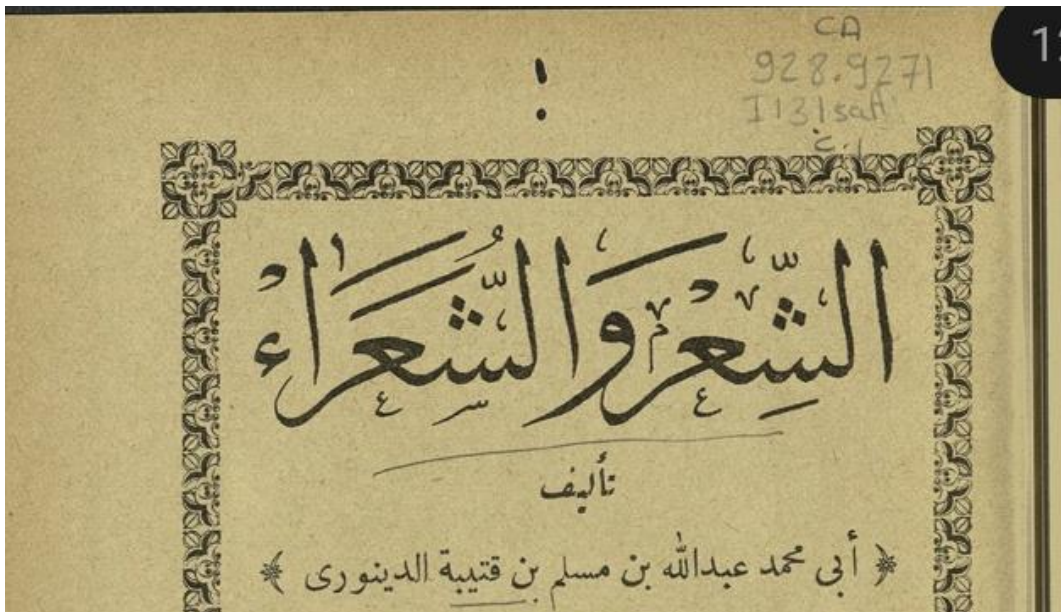 CA
928.9271
I131saA
ج.١
الشِّعْرُ وَالشُّعَرَاءُ
تأليف
﴿ أبى محمد عبدالله بن مسلم بن قتيبة الدينورى ﴾